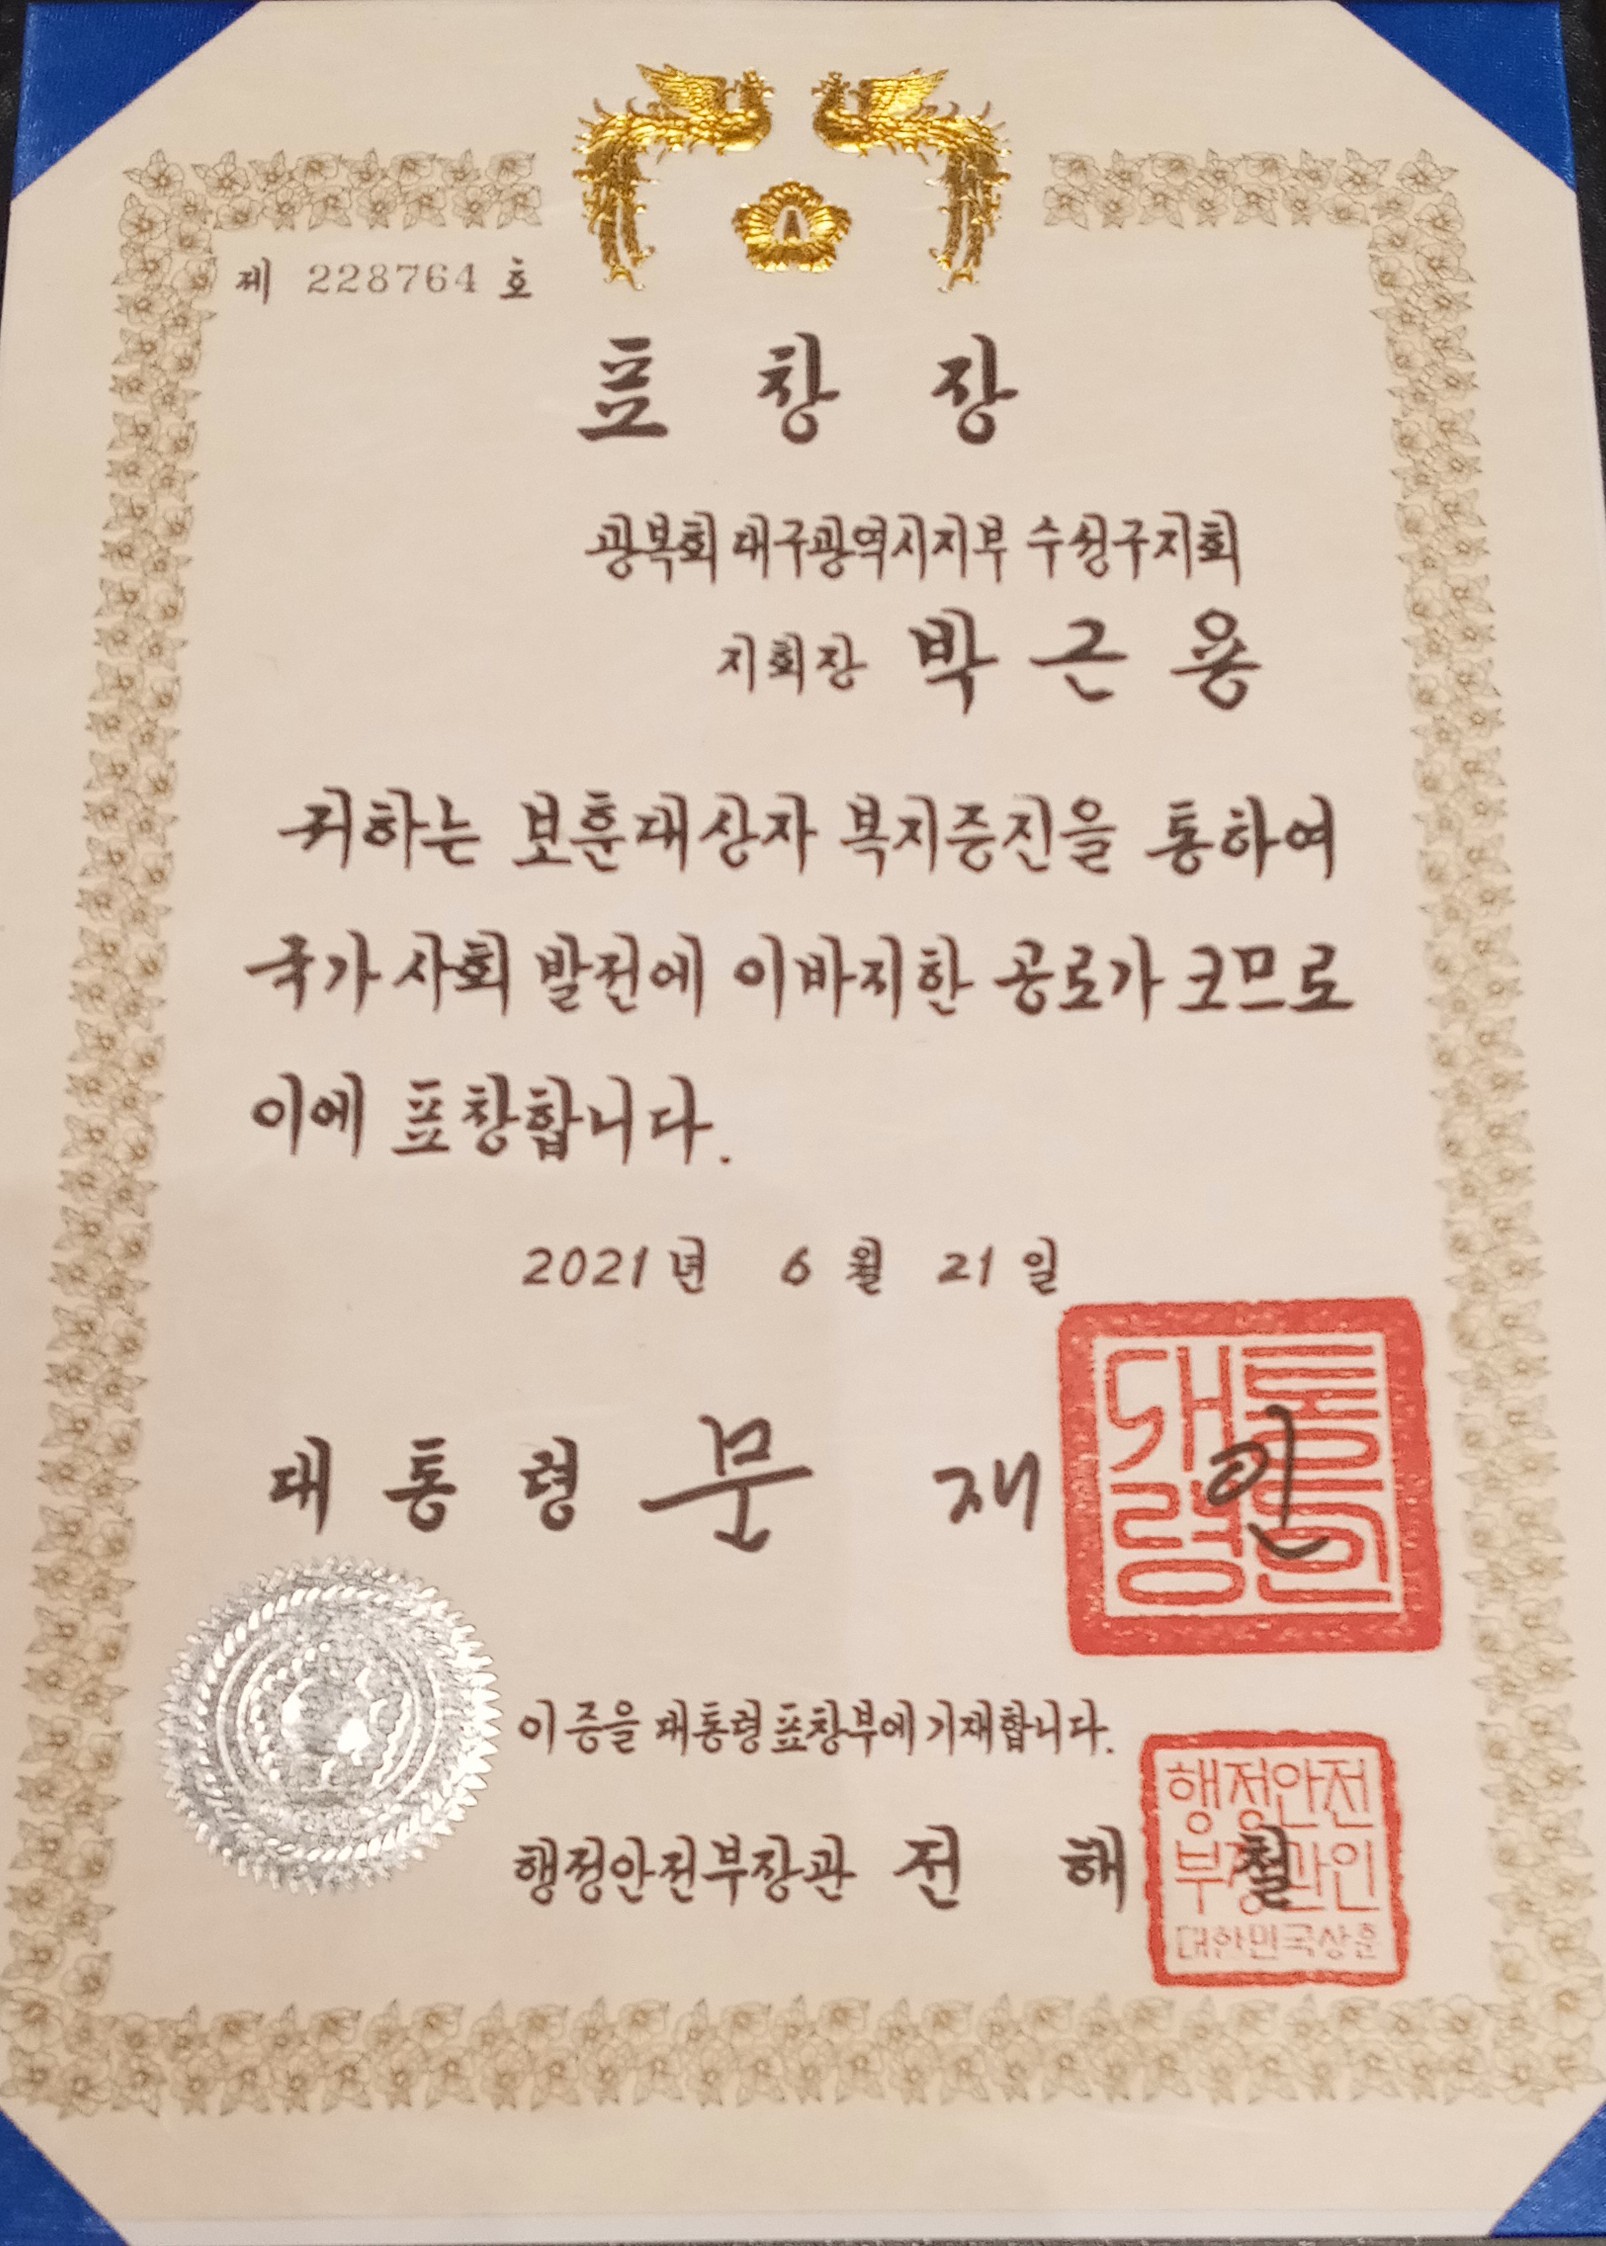 제 228764 호
표 창 장
광복회 대구광역시지부 수성구지회
지회장 박 근 용
귀하는 보훈대상자 복지증진을 통하여
국가 사회 발전에 이바지한 공로가 크므로
이에 표창합니다.
2021년 6 월 21 일
대 통 령 문 재 인
대통
령의인
이 증을 대통령 표창부에 기재합니다.
행정안전부장관 전 해 철
행정안전
부장관인
대한민국상훈